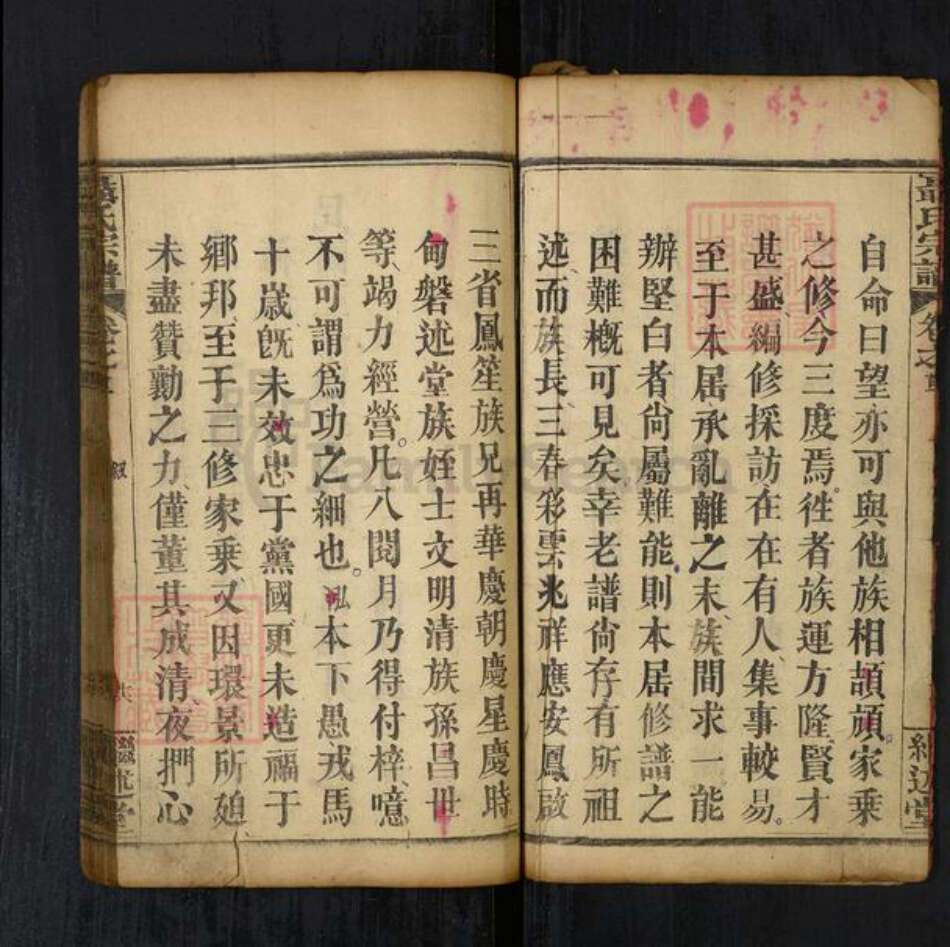 自命曰望亦可與他族相頡頏家乘
之修今三度焉徃者族運方隆賢才
甚盛編修採訪在在有人集事較易
至于本居承亂離之末族間求一能
辦堅白者尙屬難能則本居修譜之
困難槪可見矣幸老譜尙存有所祖
述而族長三春彩雲兆祥應安鳳啟
三省鳳笙族兄再華慶朝慶星慶時
甸磐述堂族姪士文明清族孫昌世
等竭力經營。凡八閱月乃得付梓噫
不可謂爲功之細也。泓本下愚戎馬
十歲旣未效忠于黨國更未造福于
鄉邦至于三修家乘又因環景所
未盡贊勷之力僅董其成清夜捫心
聶氏宗譜
卷之
敘
繼述堂
聶氏宗譜
卷之
繼述堂